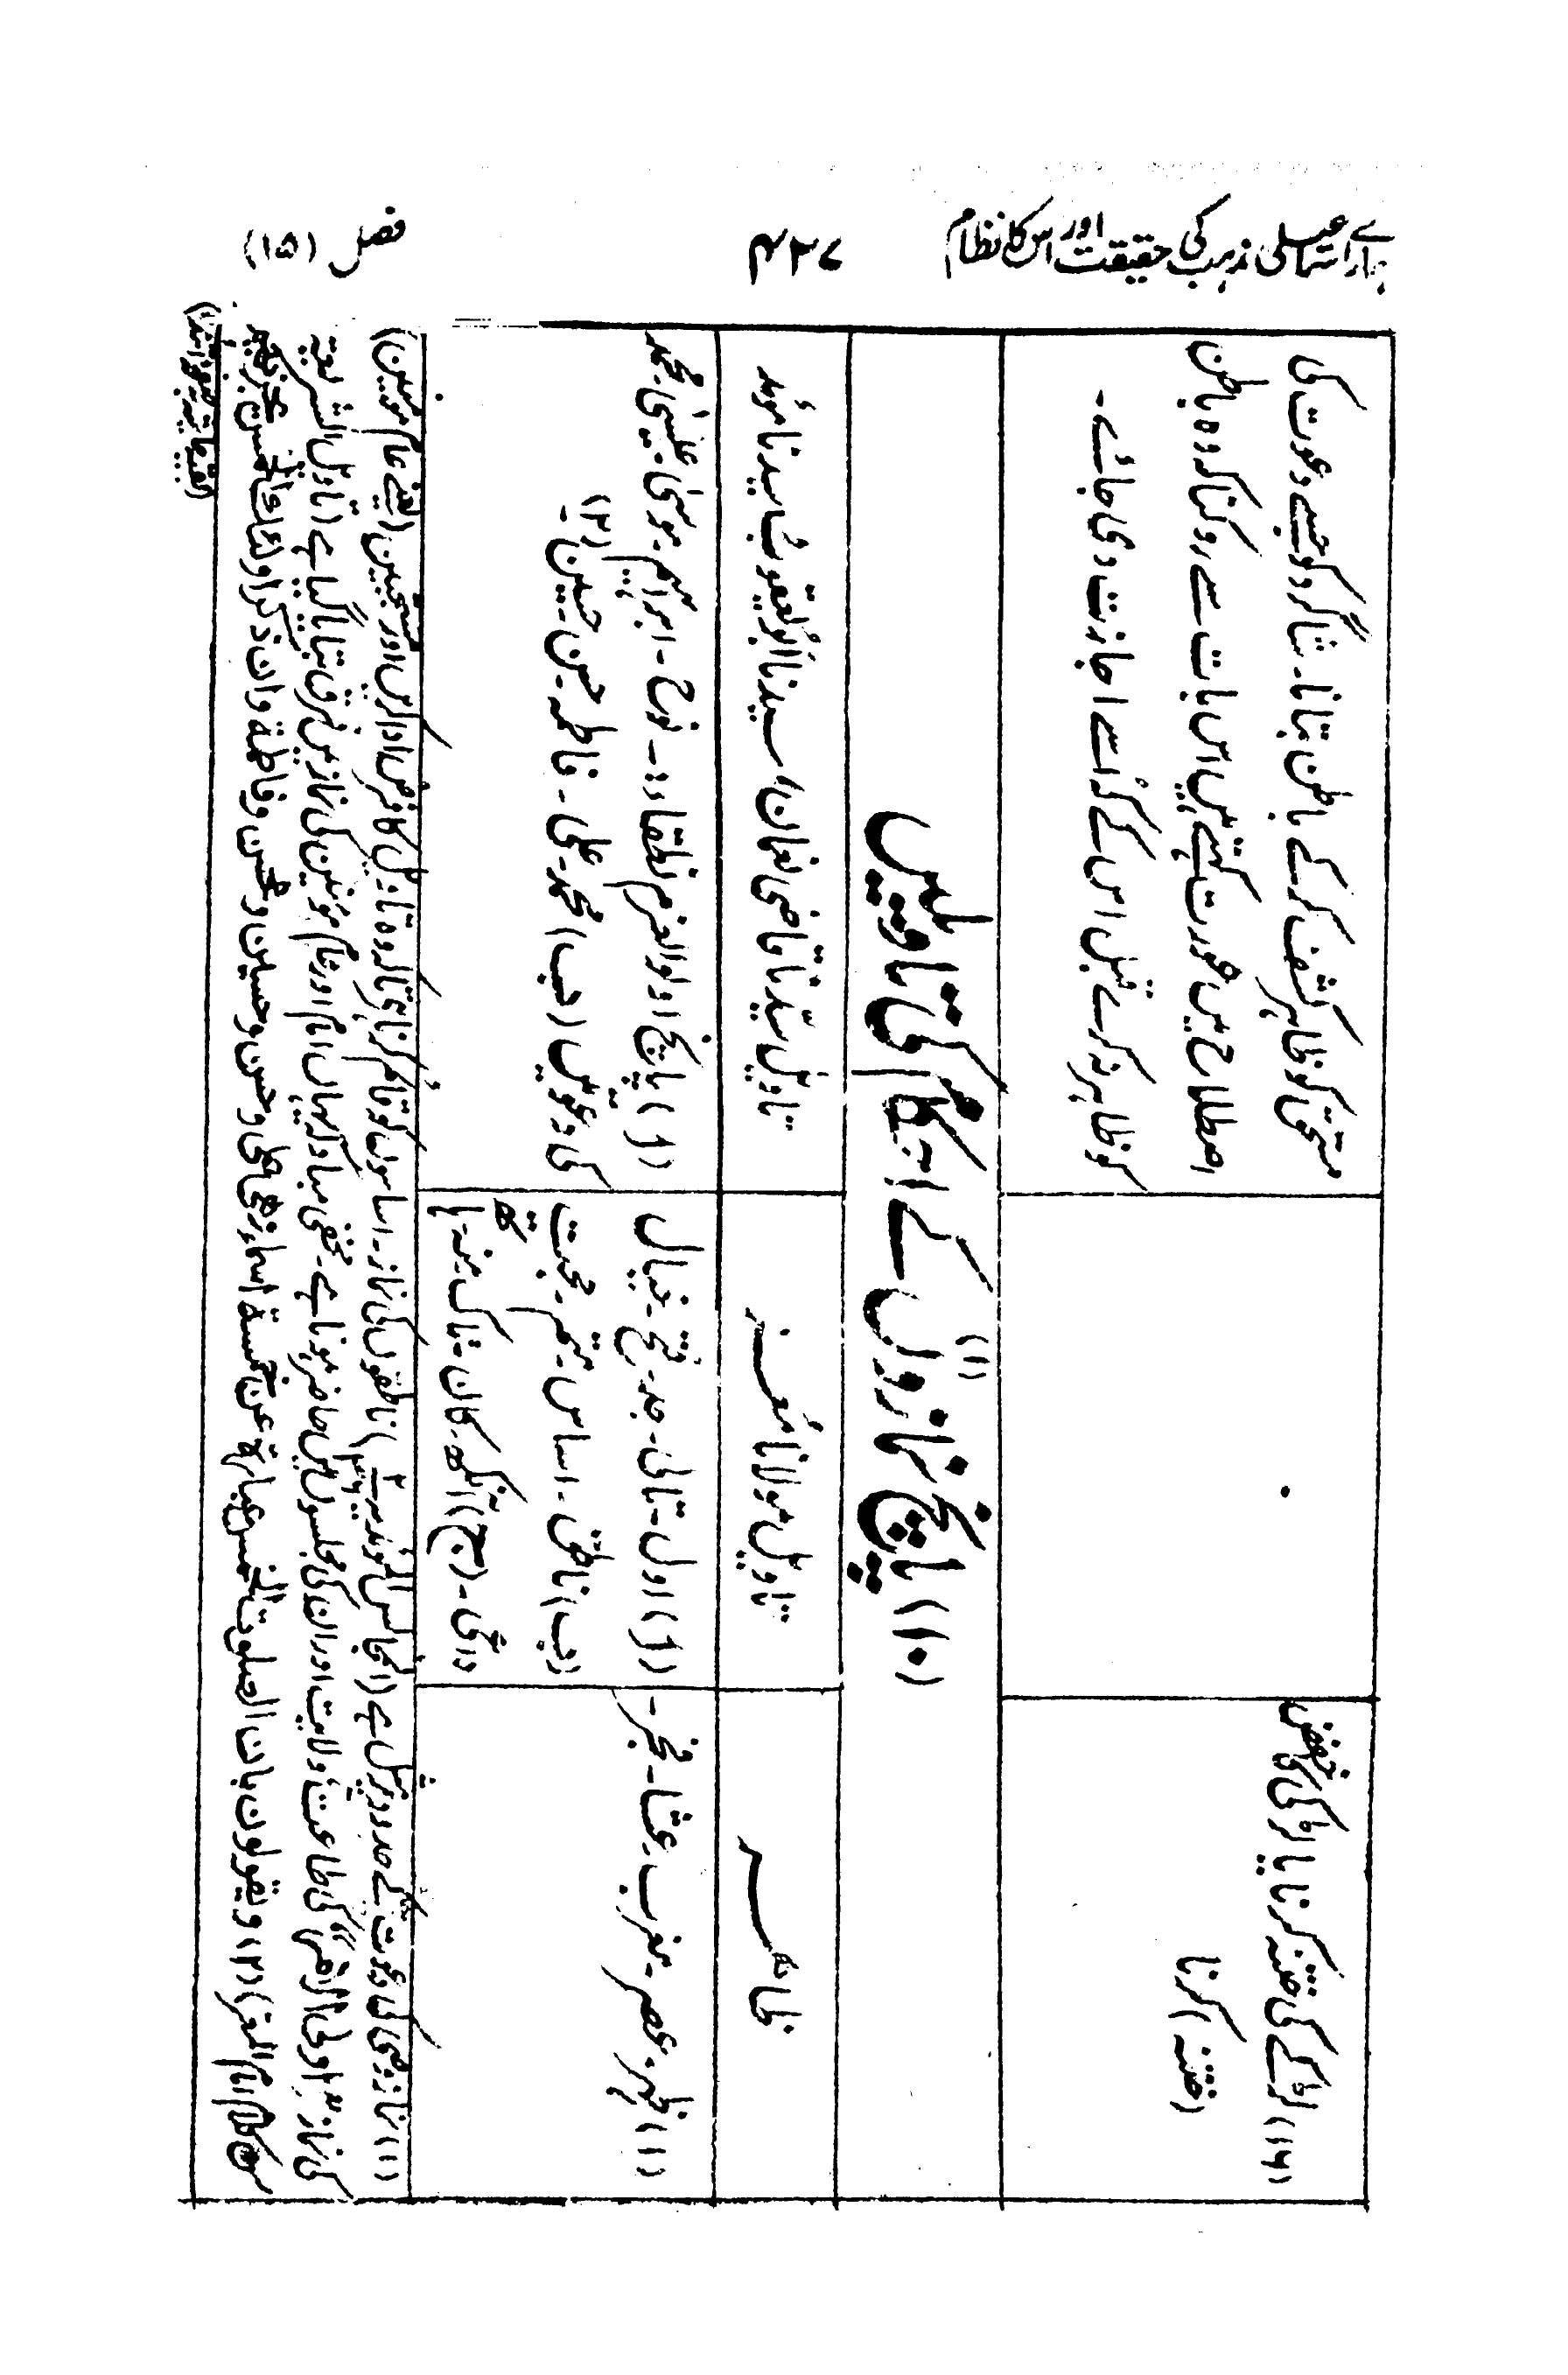 ہمارے اسماعیلی مذہب کی حقیقت اور اس کا نظام
۴۲۷
فصل (۱۵)
(۱۶) لڑکے کی ختنہ کرنا یا لڑکی کا خفض
(ختنہ) کرنا
مستحق کو ظاہر کشف کرکے باطن بتانا۔ شاگرد کو جسے دعوت کی
اصطلاح میں عورت کہتے ہیں اس بات سے روکنا کہ وہ باطن
کو ظاہر نہ کرے قبل اس کے کہ اُسے اجازت دی جائے۔
(۱۰) پانچ نمازوں (۱) کے ارتباط کی تاویلیں
ظاہر
تاویل مولانا معز
تاویل سیدنا قاضی نعمان، سیدنا ابو یعقوب، سیدنا موید
(۱) ظہر۔ عصر۔ مغرب۔ عشا۔ فجر۔
(ا) اول۔ تالی۔ جد۔ فتح۔ خیال
(ب) ناطق۔ اساس۔ متم۔ حجت
داعی۔ (ج) آنکھ۔ کان۔ ناک۔ منہ۔ ہاتھ
(ا) پانچ اولوالعزم نطقاء:۔ نوح۔ ابراہیم۔ موسیٰ۔ عیسیٰ۔ محمد
کی دعوتیں (ب) محمد۔ علی۔ فاطمہ۔ حسن۔ حسین۔ (۲)
(۱) نماز وصی کی دعوت کے حدود پر مثل ہے (المجالس المؤیدیۃ) ناطقوں کی نماز۔ اساسوں کو قائم کرنا ہے تاکہ وہ تاویل کا فرض ادا کریں اور مستجیبین (یعنی عام مومنین)
کی نماز "اولی الامر" کی طاعت و ولایت اور ان کی مجلسوں میں حاضر ہونا ہے۔ مخفی مباد کہ یہاں امام اور عام مومنین کی نماز میں فرق بتایا گیا ہے (تاویل الشریعۃ
من کلام امام المعز) (۲) و یقولون بان الصلوت الخمس عبارۃ عن خمسۃ اسماء وھی علی و حسن و حسین و محسن و فاطمۃ وان ذکر اولٰئک الخمس یجزئھم
(بقیہ حاشیہ بر صفحہ آئندہ)